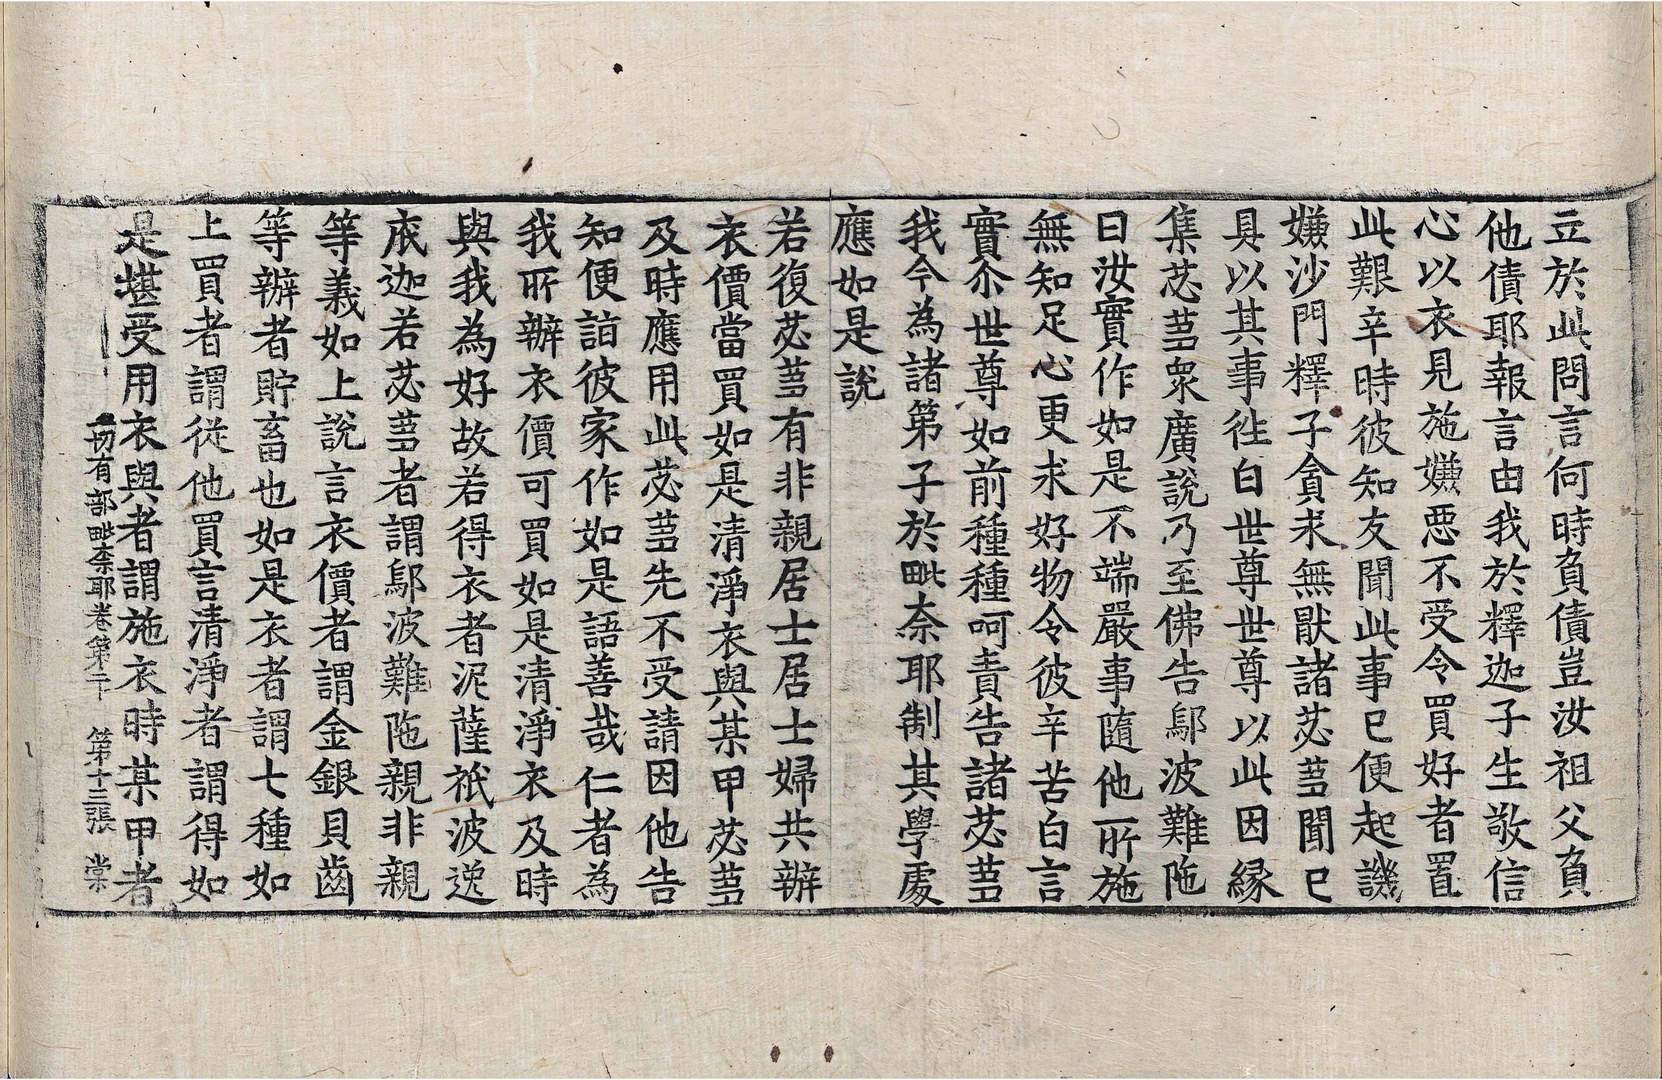 立於此問言何時負債豈汝祖父負
他債耶報言由我於釋迦子生敬信
心以衣見施嫌惡不受令買好者置
此艱辛時彼知友聞此事已便起譏
嫌沙門釋子貪求無猒諸苾芻聞已
具以其事往白世尊世尊以此因緣
集苾芻衆廣說乃至佛告鄔波難陁
曰汝實作如是不端嚴事隨他所施
無知足心更求好物令彼辛苦白言
實尒世尊如前種種呵責告諸苾芻
我今為諸第子於毗奈耶制其學處
應如是說
若復苾芻有非親居士居士婦共辦
衣價當買如是清淨衣與某甲苾芻
及時應用此苾芻先不受請因他告
知便詣彼家作如是語善哉仁者為
我所辦衣價可買如是清淨衣及時
與我為好故若得衣者泥薩祇波逸
底迦若苾芻者謂鄔波難陁親非親
等義如上說言衣價者謂金銀貝齒
等辦者貯畜也如是衣者謂七種如
上買者謂從他買言清淨者謂得如
是堪受用衣與者謂施衣時某甲者
一切有部毗奈耶卷第二十 第十三張 棠